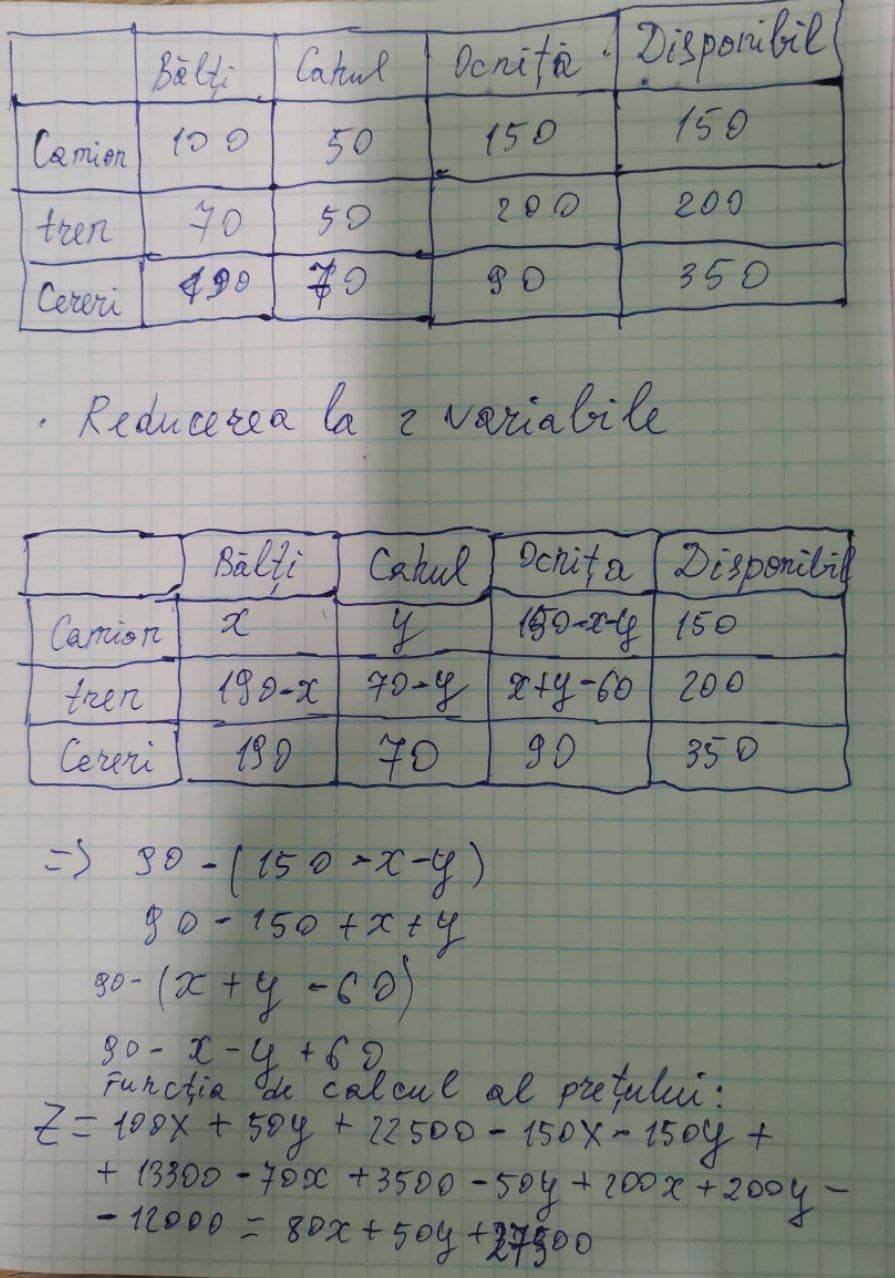 Bălți Cahul Ocnița Disponibil
Camion 100 50 150 150
tren 70 50 200 200
Cereri 190 70 90 350
· Reducerea la 2 variabile
Bălți Cahul Ocnița Disponibil
Camion x y 150-x-y 150
tren 190-x 70-y x+y-60 200
Cereri 190 70 90 350
=> 90-(150-x-y)
90-150+x+y
90-(x+y-60)
90-x-y+60
Funcția de calcul al prețului:
Z= 100x + 50y + 22500 - 150x - 150y +
+ 13300 - 70x + 3500 - 50y + 200x + 200y -
- 12000 = 80x + 50y + 27300